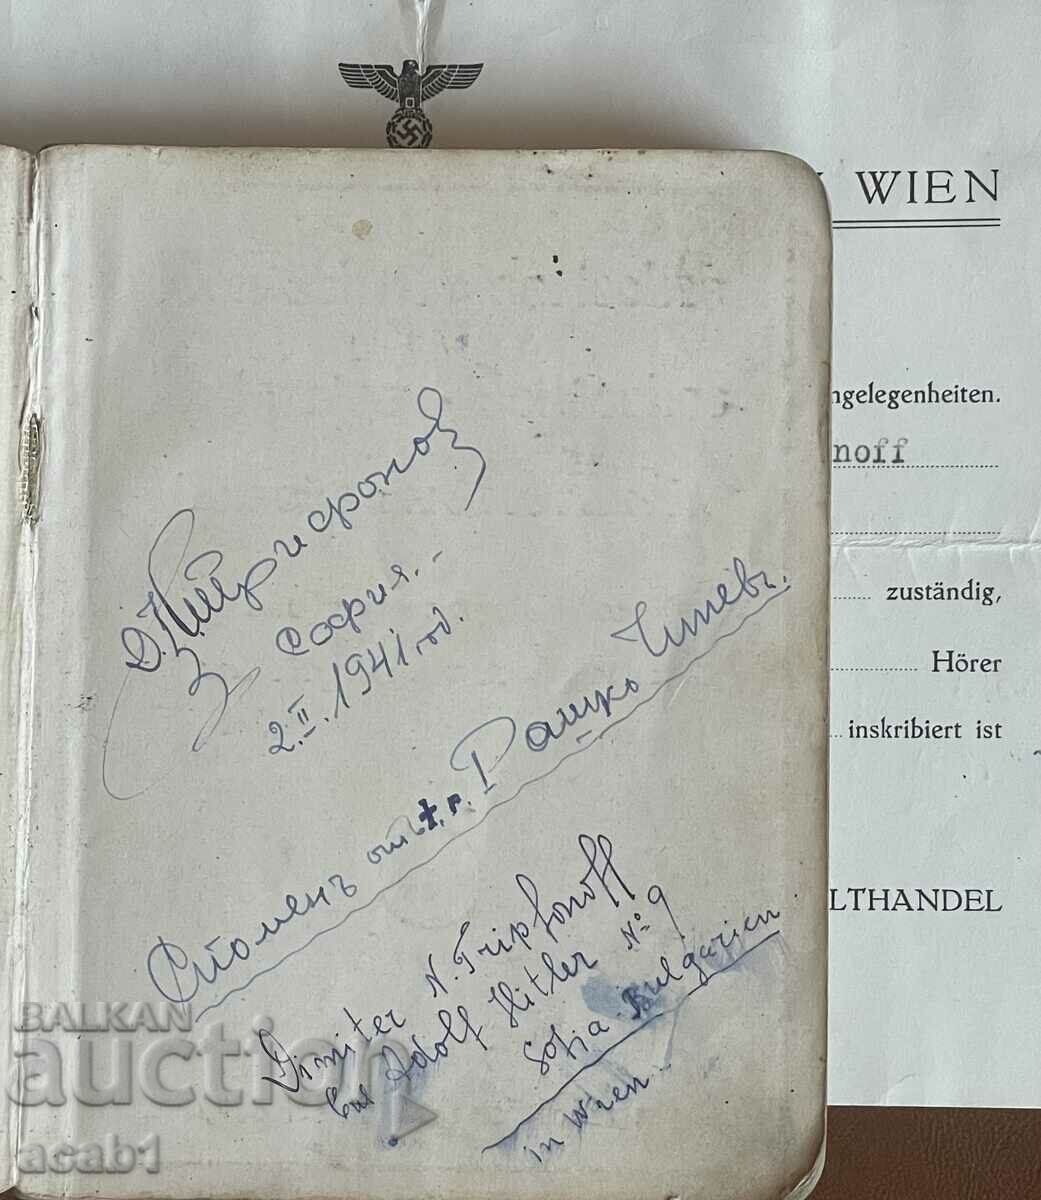 WIEN
ngelegenheiten.
noff
zuständig,
Hörer
inskribiert ist
LTHANDEL
Д. Н. Трифоновъ
София.
2.II.1941 год.
Споменъ отъ г. Рашко Ячевъ.
Dimiter N. Tripfonoff
bul Adolf Hitler № 9
Sofia Bulgarien
in Wien
BALKAN
auction
acab1